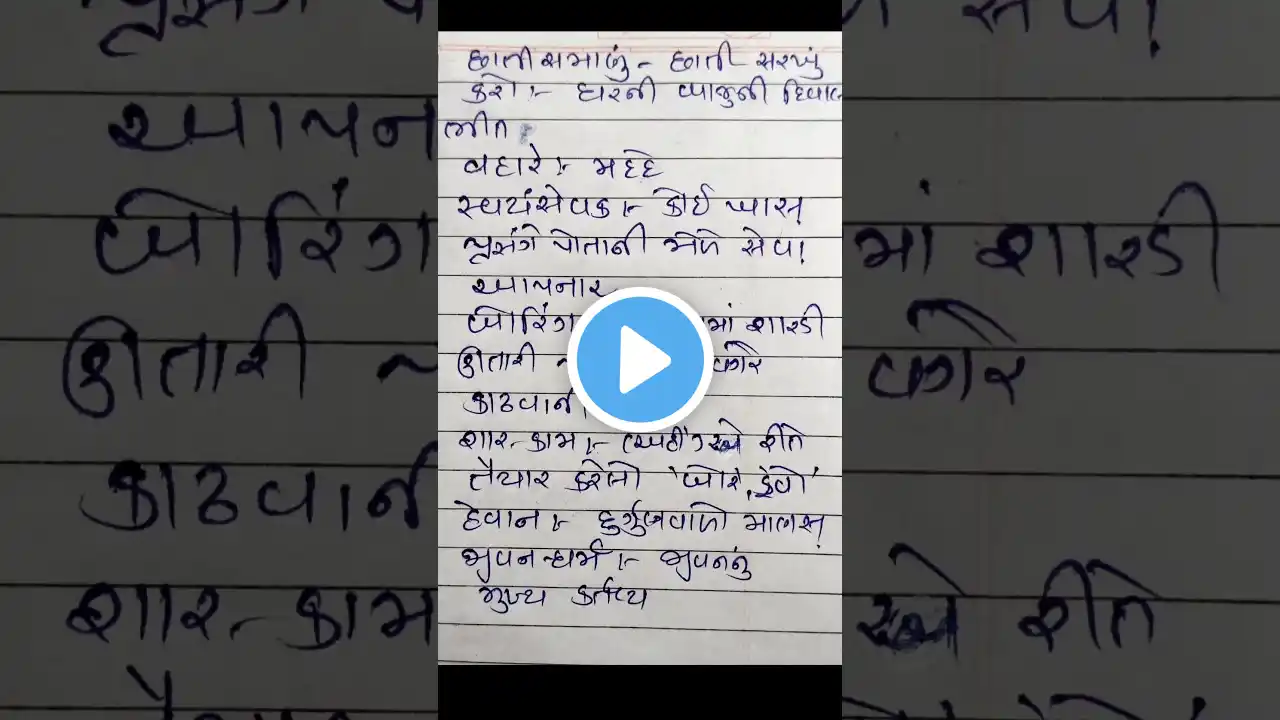 છાતીસમાણું - છાતી સરખું
કરો :- ઘરની બાજુની દિવાલ
ભીત
વહારે :- મદદે
સ્વયંસેવક :- કોઈ ખાસ
પ્રસંગે પોતાની મેળે સેવા
આપનાર
બોરિંગ માં શારડી
ઊતારી બોરે
કાઢવાની
શાર-કામ :- (અહીં) એ રીતે
તૈયાર કરેલો 'બોર, કૂવો'
હેવાન :- દુર્ગુણવાળો માણસ
જીવન-ધર્મ :- જીવનનું
મુખ્ય કર્તવ્ય